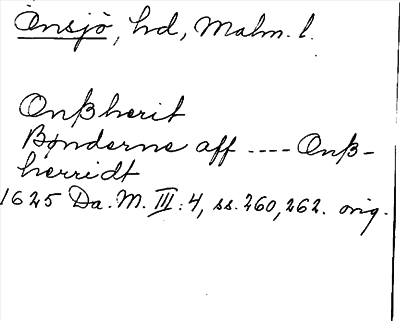 Onsjö, hd, Malm. l.
Onßherit
Bønderne aff ---- Onß-
herridt
1625 Da. M. III: 4, ss. 260, 262. orig.